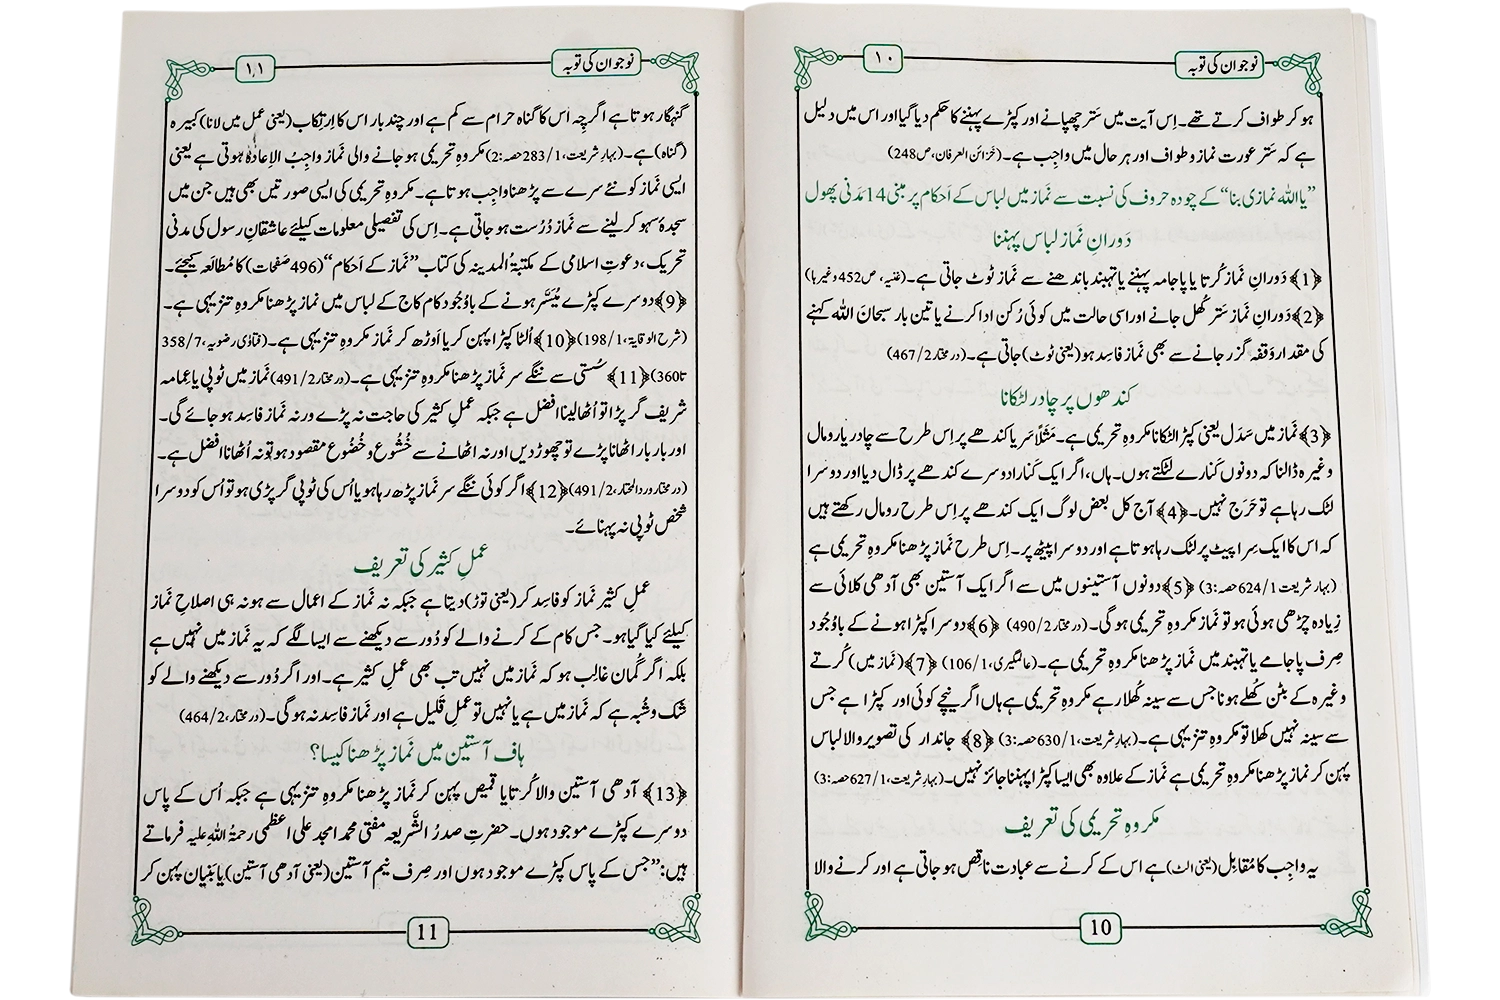 نوجوان کی توبہ
۱۰
ہو کر طواف کرتے تھے۔ اِس آیت میں سَتر چھپانے اور کپڑے پہننے کا حکم دیا گیا اور اس میں دلیل
ہے کہ سَتر عورت نماز و طواف اور ہر حال میں واجب ہے۔ (خزائن العرفان، ص248)
”یا اللہ نمازی بنا“ کے چودہ حروف کی نسبت سے نَماز میں لباس کے اَحکام پر مبنی 14 مَدَنی پھول
دَورانِ نَماز لباس پہننا
﴿1﴾ دَورانِ نَماز کُرتا یا پاجامہ پہننے یا تہبند باندھنے سے نَماز ٹوٹ جاتی ہے۔ (غنیہ، ص452 وغیرہا)
﴿2﴾ دَورانِ نَماز سَتر کُھل جانے اور اسی حالت میں کوئی رُکن ادا کرنے یا تین بار سبحانَ اللہ کہنے
کی مقدار وَقفہ گزر جانے سے بھی نَماز فاسد ہو (یعنی ٹوٹ) جاتی ہے۔ (در مختار 467/2)
کندھوں پر چادر لٹکانا
﴿3﴾ نَماز میں سَدَل یعنی کپڑا لٹکانا مکروہِ تحریمی ہے۔ مَثَلاً سَر یا کندھے پر اِس طرح سے چادر یا رومال
وغیرہ ڈالنا کہ دونوں کَنارے لٹکتے ہوں۔ ہاں، اگر ایک کَنارا دوسرے کندھے پر ڈال دیا اور دوسرا
لٹک رہا ہے تو حَرَج نہیں۔ ﴿4﴾ آج کل بعض لوگ ایک کندھے پر اِس طرح رومال رکھتے ہیں
کہ اس کا ایک سِرا پیٹ پر لٹک رہا ہوتا ہے اور دوسرا پیٹھ پر۔ اِس طرح نَماز پڑھنا مکروہِ تحریمی ہے
(بہار شریعت 624/1 حصہ:3) ﴿5﴾ دونوں آستینوں میں سے اگر ایک آستین بھی آدھی کلائی سے
زِیادہ چڑھی ہوئی ہو تو نَماز مکروہِ تحریمی ہو گی۔ (در مختار 490/2) ﴿6﴾ دوسرا کپڑا ہونے کے باوُجود
صِرف پاجامے یا تہبند میں نَماز پڑھنا مکروہِ تحریمی ہے۔ (عالمگیری، 106/1) ﴿7﴾ (نماز میں) کُرتے
وغیرہ کے بٹن کُھلے ہونا جس سے سینہ کُھلا رہے مکروہِ تحریمی ہے ہاں اگر نیچے کوئی اور کپڑا ہے جس
سے سینہ نہیں کھلا تو مکروہِ تنزیہی ہے۔ (بہارِ شریعت، 630/1 حصہ:3) ﴿8﴾ جاندار کی تصویر والا لباس
پہن کر نماز پڑھنا مکروہِ تحریمی ہے نَماز کے علاوہ بھی ایسا کپڑا پہننا جائز نہیں۔ (بہارِ شریعت، 627/1 حصہ:3)
مکروہِ تحریمی کی تعریف
یہ واجِب کا مُقابِل (یعنی الٹ) ہے اس کے کرنے سے عبادت ناقِص ہو جاتی ہے اور کرنے والا
10
نوجوان کی توبہ
۱۱
گنہگار ہوتا ہے اگرچِہ اس کا گناہ حرام سے کم ہے اور چند بار اس کا اِرتِکاب (یعنی عمل میں لانا) کبیرہ
(گناہ) ہے۔ (بہارِ شریعت، 283/1 حصہ:2) مکروہِ تحریمی ہو جانے والی نَماز واجِبُ الاِعادَہ ہوتی ہے یعنی
ایسی نَماز کو نئے سرے سے پڑھنا واجِب ہوتا ہے۔ مکروہِ تحریمی کی ایسی صورتیں بھی ہیں جن میں
سجدۂ سہو کر لینے سے نَماز دُرُست ہو جاتی ہے۔ اِس کی تفصیلی معلومات کیلئے عاشقانِ رسول کی مدنی
تحریک، دعوتِ اسلامی کے مکتبۃُ المدینہ کی کتاب ”نَماز کے اَحکام“ (496 صفحات) کا مُطالَعہ کیجئے۔
﴿9﴾ دوسرے کپڑے مُیَسَّر ہونے کے باوُجُود کام کاج کے لباس میں نماز پڑھنا مکروہِ تنزیہی ہے۔
(شرح الوقایۃ، 198/1) ﴿10﴾ اُلٹا کپڑا پہن کر یا اَوڑھ کر نَماز مکروہِ تنزیہی ہے۔ (فتاوٰی رضویہ، 358/7
تا360) ﴿11﴾ سُستی سے ننگے سر نَماز پڑھنا مکروہِ تنزیہی ہے۔ (در مختار 491/2) نَماز میں ٹوپی یا عِمامہ
شریف گر پڑا تو اُٹھا لینا افضل ہے جبکہ عملِ کثیر کی حاجت نہ پڑے ورنہ نَماز فاسِد ہو جائے گی۔
اور بار بار اٹھانا پڑے تو چھوڑ دیں اور نہ اٹھانے سے خُشُوع و خُضُوع مقصود ہو تو نہ اُٹھانا افضل ہے۔
(در مختار ورد المحتار، 491/2) ﴿12﴾ اگر کوئی ننگے سر نَماز پڑھ رہا ہو یا اُس کی ٹوپی گر پڑی ہو تو اُس کو دوسرا
شخص ٹوپی نہ پہنائے۔
عملِ کثیر کی تعریف
عملِ کثیر نَماز کو فاسِد کر (یعنی توڑ) دیتا ہے جبکہ نہ نَماز کے اعمال سے ہو نہ ہی اصلاحِ نَماز
کیلئے کیا گیا ہو۔ جس کام کے کرنے والے کو دُور سے دیکھنے سے ایسا لگے کہ یہ نَماز میں نہیں ہے
بلکہ اگر گُمان غالِب ہو کہ نَماز میں نہیں تب بھی عملِ کثیر ہے۔ اور اگر دُور سے دیکھنے والے کو
شک و شُبہ ہے کہ نَماز میں ہے یا نہیں تو عملِ قَلیل ہے اور نَماز فاسِد نہ ہو گی۔ (در مختار، 464/2)
ہاف آستین میں نَماز پڑھنا کیسا؟
﴿13﴾ آدھی آستین والا کُرتا یا قمیص پہن کر نَماز پڑھنا مکروہِ تنزیہی ہے جبکہ اُس کے پاس
دوسرے کپڑے موجود ہوں۔ حضرتِ صدرُ الشَّریعہ مفتی محمد امجد علی اعظمی رحمۃُ اللہِ علیہ فرماتے
ہیں: ”جس کے پاس کپڑے موجود ہوں اور صِرف نیم آستین (یعنی آدھی آستین) یا بَنیان پہن کر
11